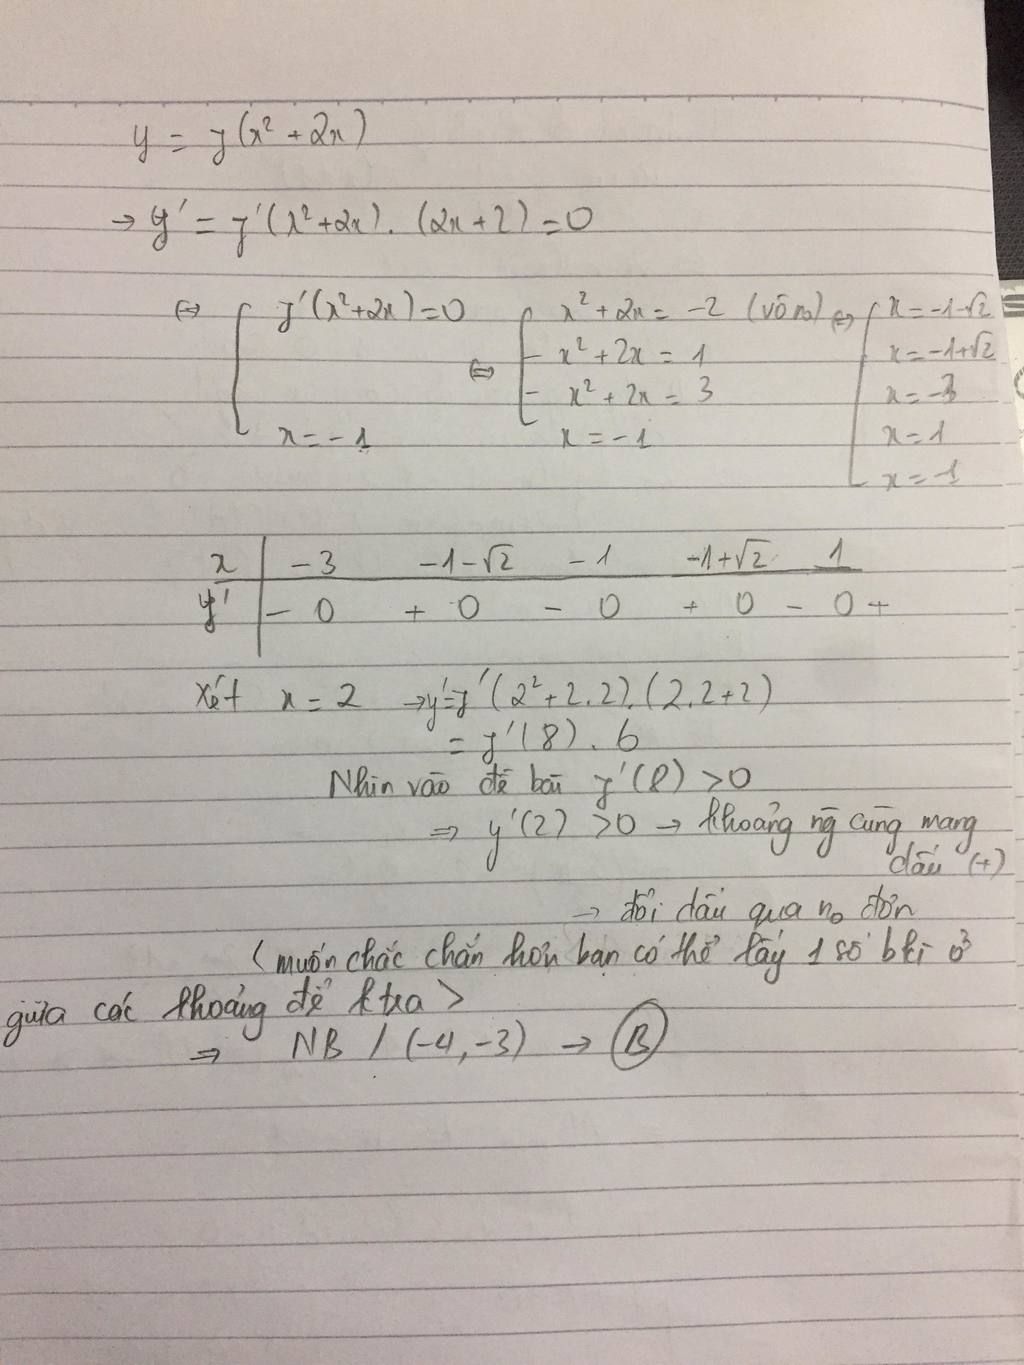 y = f(x² + 2x)
→ y' = f'(x²+2x). (2x+2) = 0
⇔ [ f'(x²+2x) = 0 ⇔ [ x²+2x = -2 (vô no) ⇔ [ x = -1-√2
x² + 2x = 1 x = -1+√2
x² + 2x = 3 x = -3
x = -1 x = -1 x = 1
x = -1
x | -3 -1-√2 -1 -1+√2 1
y' | - 0 + 0 - 0 + 0 - 0 +
Xét x = 2 → y' = f'(2²+2.2).(2.2+2)
= f'(8).6
Nhìn vào đề bài f'(8) > 0
⇒ y'(2) > 0 → khoảng ng cùng mang
dấu (+)
→ đổi dấu qua no đơn
(muốn chắc chắn hơn bạn có thể lấy 1 số bkì ở
giữa các khoảng để ktra)
⇒ NB / (-4,-3) → B